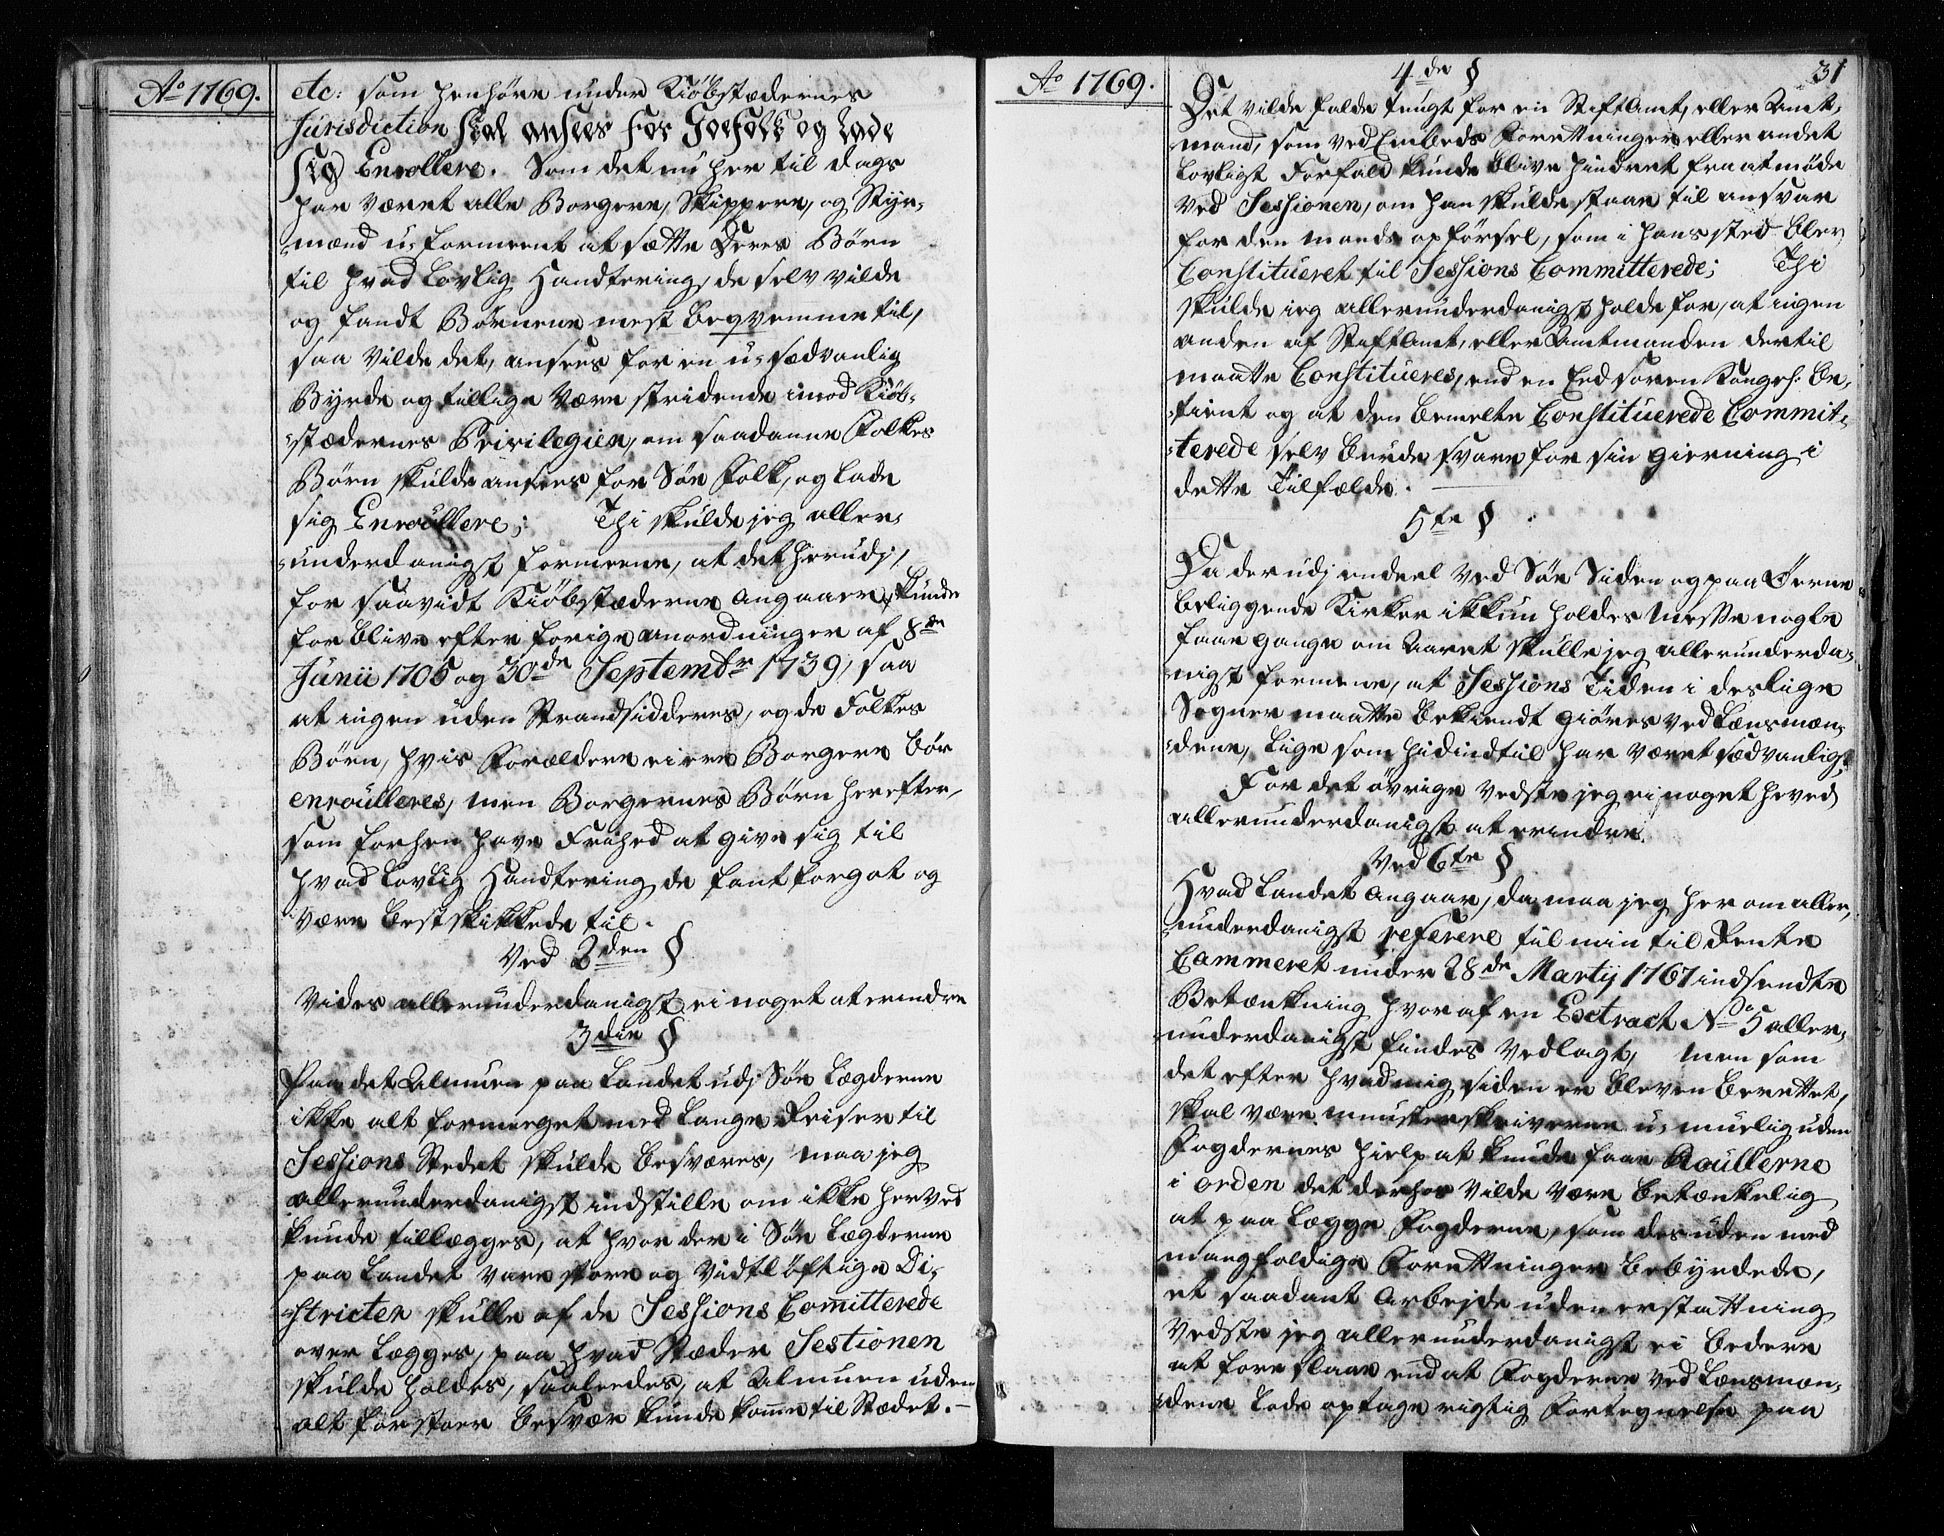 Ao 1769.
etc: som henhöre under Kiöbstædernes
Jurisdiction skal ansees for Söefolk og lade
sig Enrollere. Som det nu her til dags
har været alle Borgere, Skippere, og Styr-
mænd u-formeent at sætte Deres Börn
til hvad lovlig Handtering, de selv vilde
og fandt Börnene mest beqvemme til,
saa vilde det, ansees for en u-sædvanlig
Byrde og tillige være stridende imod Kiöb-
stædernes Privilegien, om saadanne Folkes
Börn skulde ansees for Söe Folk, og lade
sig Enroullere; Thi skulde jeg aller-
underdanigst formeene, at det herudj,
for saavidt Kiöbstæderne angaaer, kunde
for blive efter forige anordninger af 8de
Junii 1706 og 30de Septembr 1739, saa
at ingen uden Strandsidderes, og de Folkes
Börn, hvis Forældre ei ere Borgere bör
enroulleres, men Borgernes Börn herefter,
som forhen have Frihed at give sig til
hvad lovlig Handtering de fant forgot og
være best skikkede til.
Ved 2den §
Vides allerunderdanigst ei noget at erindre
3die §
Paa det Almuen paa Landet udj Söe Lægderne
ikke alt formeeget med lange Reiser til
Sessions Stedet skulde besværes, maa jeg
allerunderdanigst indstille om ikke herved
kunde tillægges, at hvor der i Söe Lægderne
paa Landet vare store og vidtlöftige Di-
stricter skulle af de Sessions Comitterede
over lægges, paa hvad Stæder Sestionen
skulde holdes, saaledes, at Almuen uden
alt for stoer besvær kunde kome til Stædet.
Ao 1769.
31
4de §
Det vilde falde tungt for en Stiftamt, eller Amt-
mand, som ved Embeds Forrettninger eller andet
lovligt Forfald kunde blive hindret fra at möde
ved Sessionen, om han skulde staae til ansvar
for den mands opförsel, som i hans sted blev
Constitueret til Sessions Committerede; Thi
skulde jeg allerunderdanigst holde for, at ingen
anden af Stiftamt, eller Amtmanden dertil
maatte Constitueres, end en Eedsoren Kongel: be-
tient og at den bemelte Constituerede Commit-
terede selv burde svare for sin gierning i
dette Tilfælde.
5te §
Da der udj endeel ved Söe Siden og paa Öerne
beliggende Kirker ikkun holdes Messe nogle
faae gange om Aaret skulle jeg allerunderda-
nigst formene, at Sessions Tiden i deslige
Sogner maatte bekiendt giöres ved Lænsmæn-
dene, lige som hidindtil har været sædvanligt
For det övrige vedste jeg ei noget herved
allerunderdanigst at erindre.
Ved 6te §
Hvad Landet angaar, da maa jeg her om aller-
underdanigst referere til min til Rente
Cammeret under 28de Martij 1767 indsendte
Betænkning hvoraf en Extract No 5 aller-
underdanigst findes vedlagt, men som
det efter hvad mig siden er bleven berettet,
skal være munsterskriverne u-muelig uden
Fogdernes hielp at kunde faae Roullerne
i orden det derhos vilde være betænkelig
at paa lægge Fogderne, som desuden med
mangfoldige Forrettninger bebyrdede,
et saadant Arbejde uden erstattning
Vedste jeg allerunderdanigst ei bedere
at fore slaae end at Fogderne ved Lænsmæn-
dene lode optage rigtig Fortegnelse paa